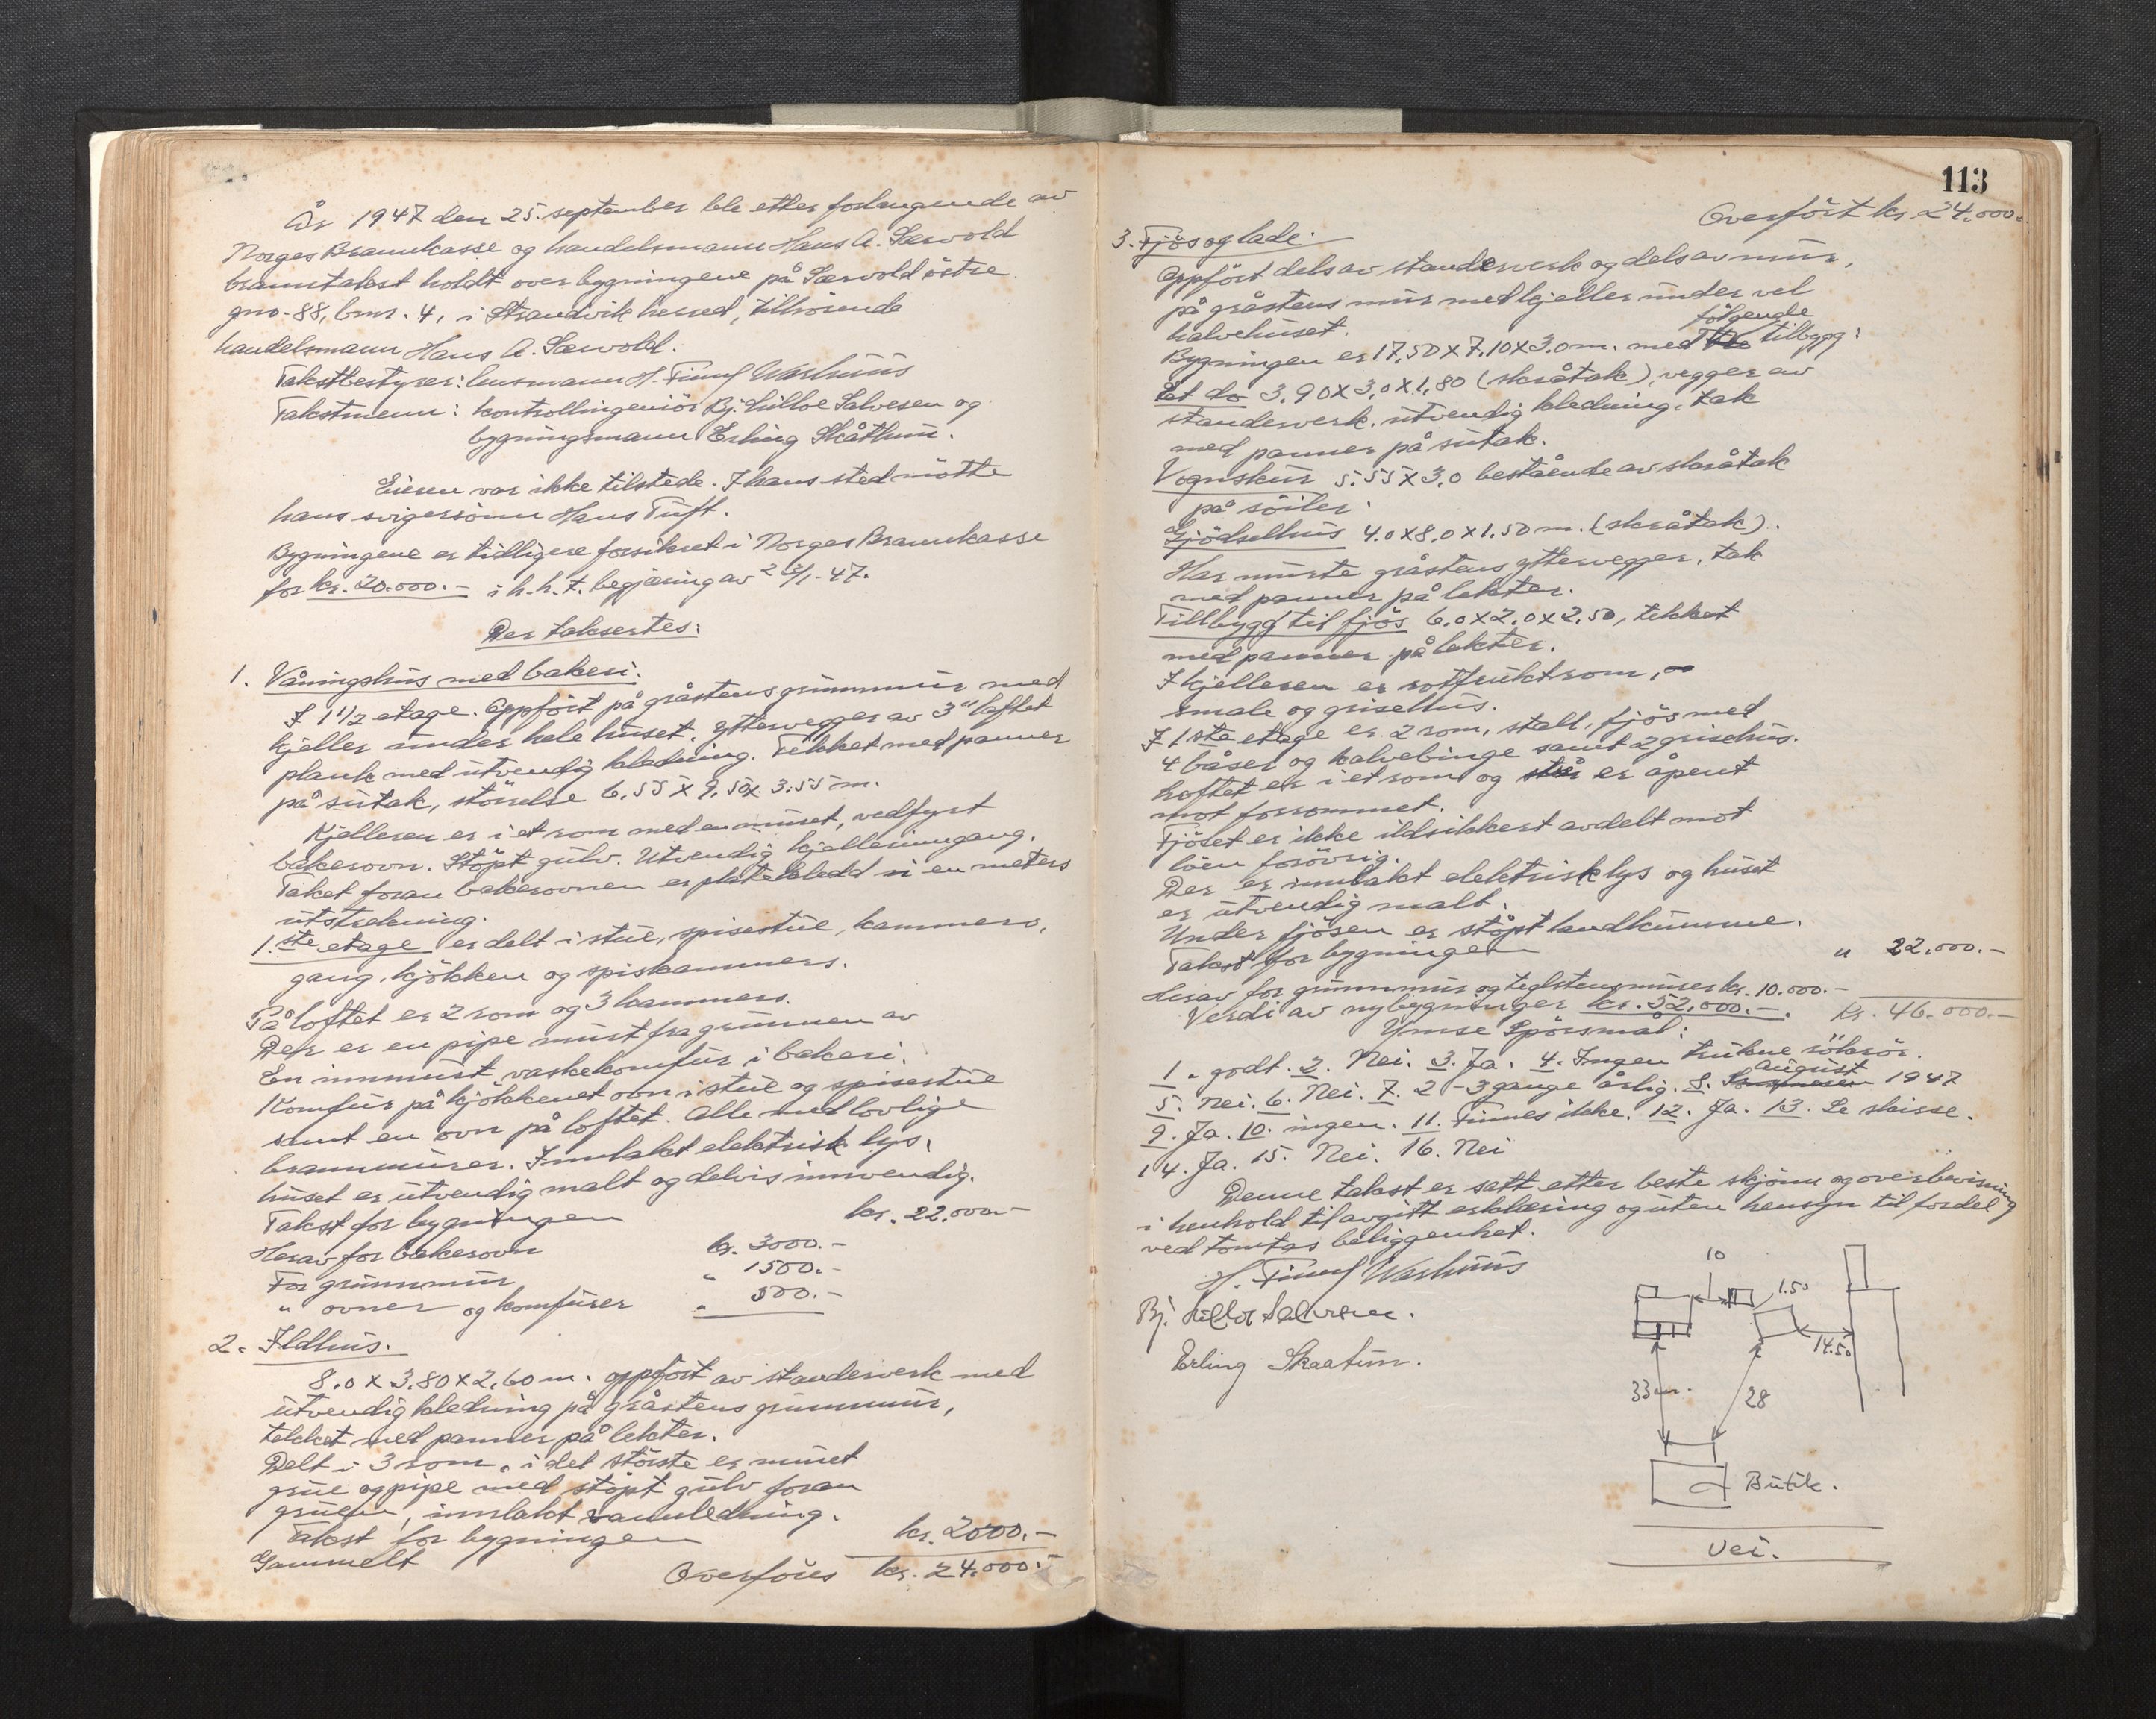 År 1947 den 25. september ble etter forlangende av
Norges Brannkasse og handelsmann Hans A. Særvold
branntakst holdt over bygningene på Særvold östre
gno. 88, bnr. 4, i Strandvik herred, tilhörende
handelsmann Hans A. Særvold.
Takstbestyrer: lensmann H. Finnf Warhuus
Takstmenn: kontrollingeniör Bj. Lilloe Salvesen og
bygningsmann Erling Skåthun.
Eieren var ikke tilstede. I hans sted mötte
hans svigersönn Hans Tuft.
Bygningene er tidligere forsikret i Norges Brannkasse
for kr. 20.000.- i h.h.t. begjæring av 23/1-47.
Der taksertes:
1. Våningshus med bakeri.
I 1 1/2 etage. Oppfört på gråstens grunnmur med
kjeller under hele huset. Yttervegger av 3" laftet
plank med utvendig kledning. Tekket med panner
på sutak, störrelse 6.55 x 9.50 x 3.55 m.
Kjelleren er i et rom med en muret, vedfyrt
bakerovn. Stöpt gulv. Utvendig kjellerinngang.
Taket foran bakerovnen er platekledd i en meters
utstrekning.
1.ste etage er delt i stue, spisestue, kammers,
gang, kjökken og spiskammers.
På loftet er 2 rom og 3 kammers.
Der er en pipe murt fra grunnen av
En innmurt vaskekomfur i bakeri.
Komfur på kjökkenet ovn i stue og spisestue
samt en ovn på loftet. Alle med lovlige
brannmurer. Innlakt elektrisk lys,
huset er utvendig malt og delvis innvendig.
Takst for bygningen kr. 22.000.-
Herav for bakerovn kr. 3000.-
For grunnmur " 1500.-
" ovner og komfurer " 500.-
2. Ildhus.
8.0 x 3.80 x 2.60 m. oppfört av standerverk med
utvendig kledning på gråstens grunnmur,
tekket med panner på lekter.
Delt i 3 rom, i det störste er muret
grue og pipe med stöpt gulv foran
gruen, innlakt vannledning.
Takst for bygningen kr. 2000.-
Sammelt Overföres kr. 24.000.-
113
Overfört kr. 24.000.
3. Fjös og lade.
Oppfört dels av standerverk og dels av mur,
på gråstens mur med kjeller under vel
halve huset.
fölgende
Bygningen er 17,50 x 7.10 x 3.0 m. med tilbygg:
Et do 3.90 x 3,0 x 1,80 (skråtak), vegger av
standerverk, utvendig kledning, tak
med panner på sutak.
Vognskur 5.55 x 3.0 bestående av skråtak
på söiler.
Gjödselhus 4.0 x 8,0 x 1.50 m. (skråtak).
Har murte gråstens yttervegger, tak
med panner på lekter.
Tilbygg til fjös 6.0 x 2.0 x 2.50, tekket
med panner på lekter.
I kjelleren er rotfruktrom,
smale og grisehus.
I 1ste etage er 2 rom, stall, fjös med
4 båser og kalvebinge samt 2 grisehus.
Loftet er i et rom og er åpent
mot forrommet.
Fjöset er ikke ildsikkert avdelt mot
löen forövrig.
Der er innlakt elektrisk lys og huset
er utvendig malt.
Under fjösen er stöpt landkumme.
Takst for bygningen " 22.000.-
Herav for grunnmur og teglstensmurer kr. 10.000.-
Verdi av nybygninger kr. 52.000.-. Kr. 46.000.-
Ymse Spörsmål:
1. godt. 2. Nei. 3. Ja. 4. Ingen trukne rökrör.
august
5. Nei. 6. Nei. 7. 2-3 gange årlig. 8. 1947
9. Ja. 10. ingen. 11. Finnes ikke. 12. Ja. 13. Se skisse.
14. Ja. 15. Nei. 16. Nei
Denne takst er satt etter beste skjönn og overbevisning
i henhold til avgitt erklæring og uten hensyn til fordel
ved tomtas beliggenhet.
H. Finnf Warhuus
Bj. Lilloe Salvesen.
Erling Skaatun.
10
1.50
14.50
33 m.
28
Butik.
Vei.